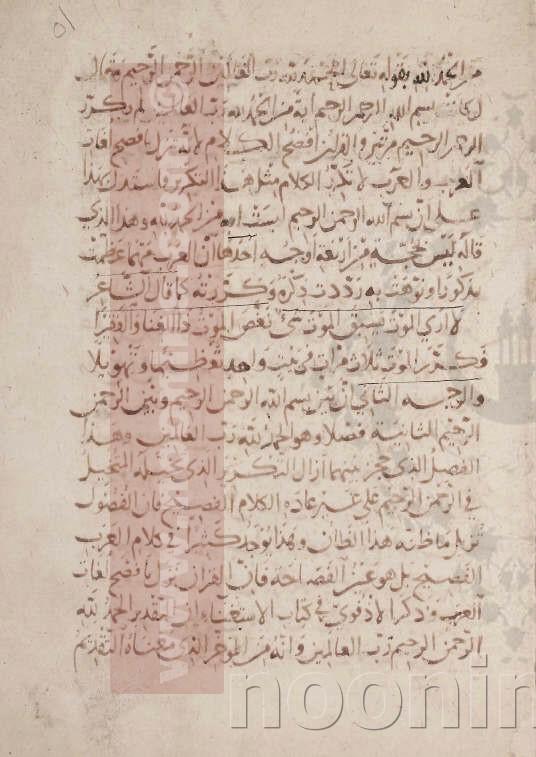 ٥١
من الحمد لله بقوله تعالى الحمد لله رب العالمين الرحمن الرحيم فقال
لو كانت بسم الله الرحمن الرحيم اية من الحمد لله رب العالمين لم يكرر
الرحمن الرحيم مرتين والقران افصح الكلام لانه نزل بافصح لغات
العرب والعرب لا تكرر الكلام مثل هذا التكرير فاستدل بهذا
على ان بسم الله الرحمن الرحيم ليست اية من الحمد لله وهذا الذي
قاله ليس بحجة من اربعة اوجه احدها ان العرب مهما عظمت
مذكورا ونوهت به رددت ذكره وكررته كما قال الشاعر
لا اري الموت يسبق الموت شيء نغص الموت ذا الغنا والفقرا
فكرر الموت ثلاث مرات في بيت واحد تعظيما وتهويلا
والوجه الثاني ان بين بسم الله الرحمن الرحيم وبين الرحمن
الرحيم الثانية فصلا وهو الحمد لله رب العالمين وهذا
الفصل الذي حجز بينهما ازال التكرير الذي
في الرحمن الرحيم على غير عادة الكلام الفصيح فان الفصول
تزيل ما ظنه هذا الظان وهذا يوجد كثيرا في كلام العرب
الفصيح بل هو عين الفصاحة فان القران نزل بافصح لغات
العرب وذكر الادفوي في كتاب الاستغناء ان تقدير الحمد لله
الرحمن الرحيم رب العالمين وانه من الموخر الذي معناه التقديم
noonin